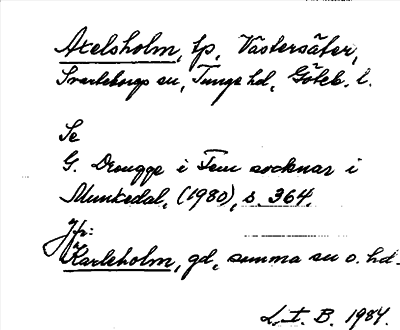 Axelsholm, tp, Västersäter,
Svarteborgs sn, Tunge hd, Göteb. l.
Se
G. Drougge i Fem socknar i
Munkedal, (1980), s. 364.
Jfr:
Karleholm, gd, samma sn o. hd.
L.t. B. 1984.